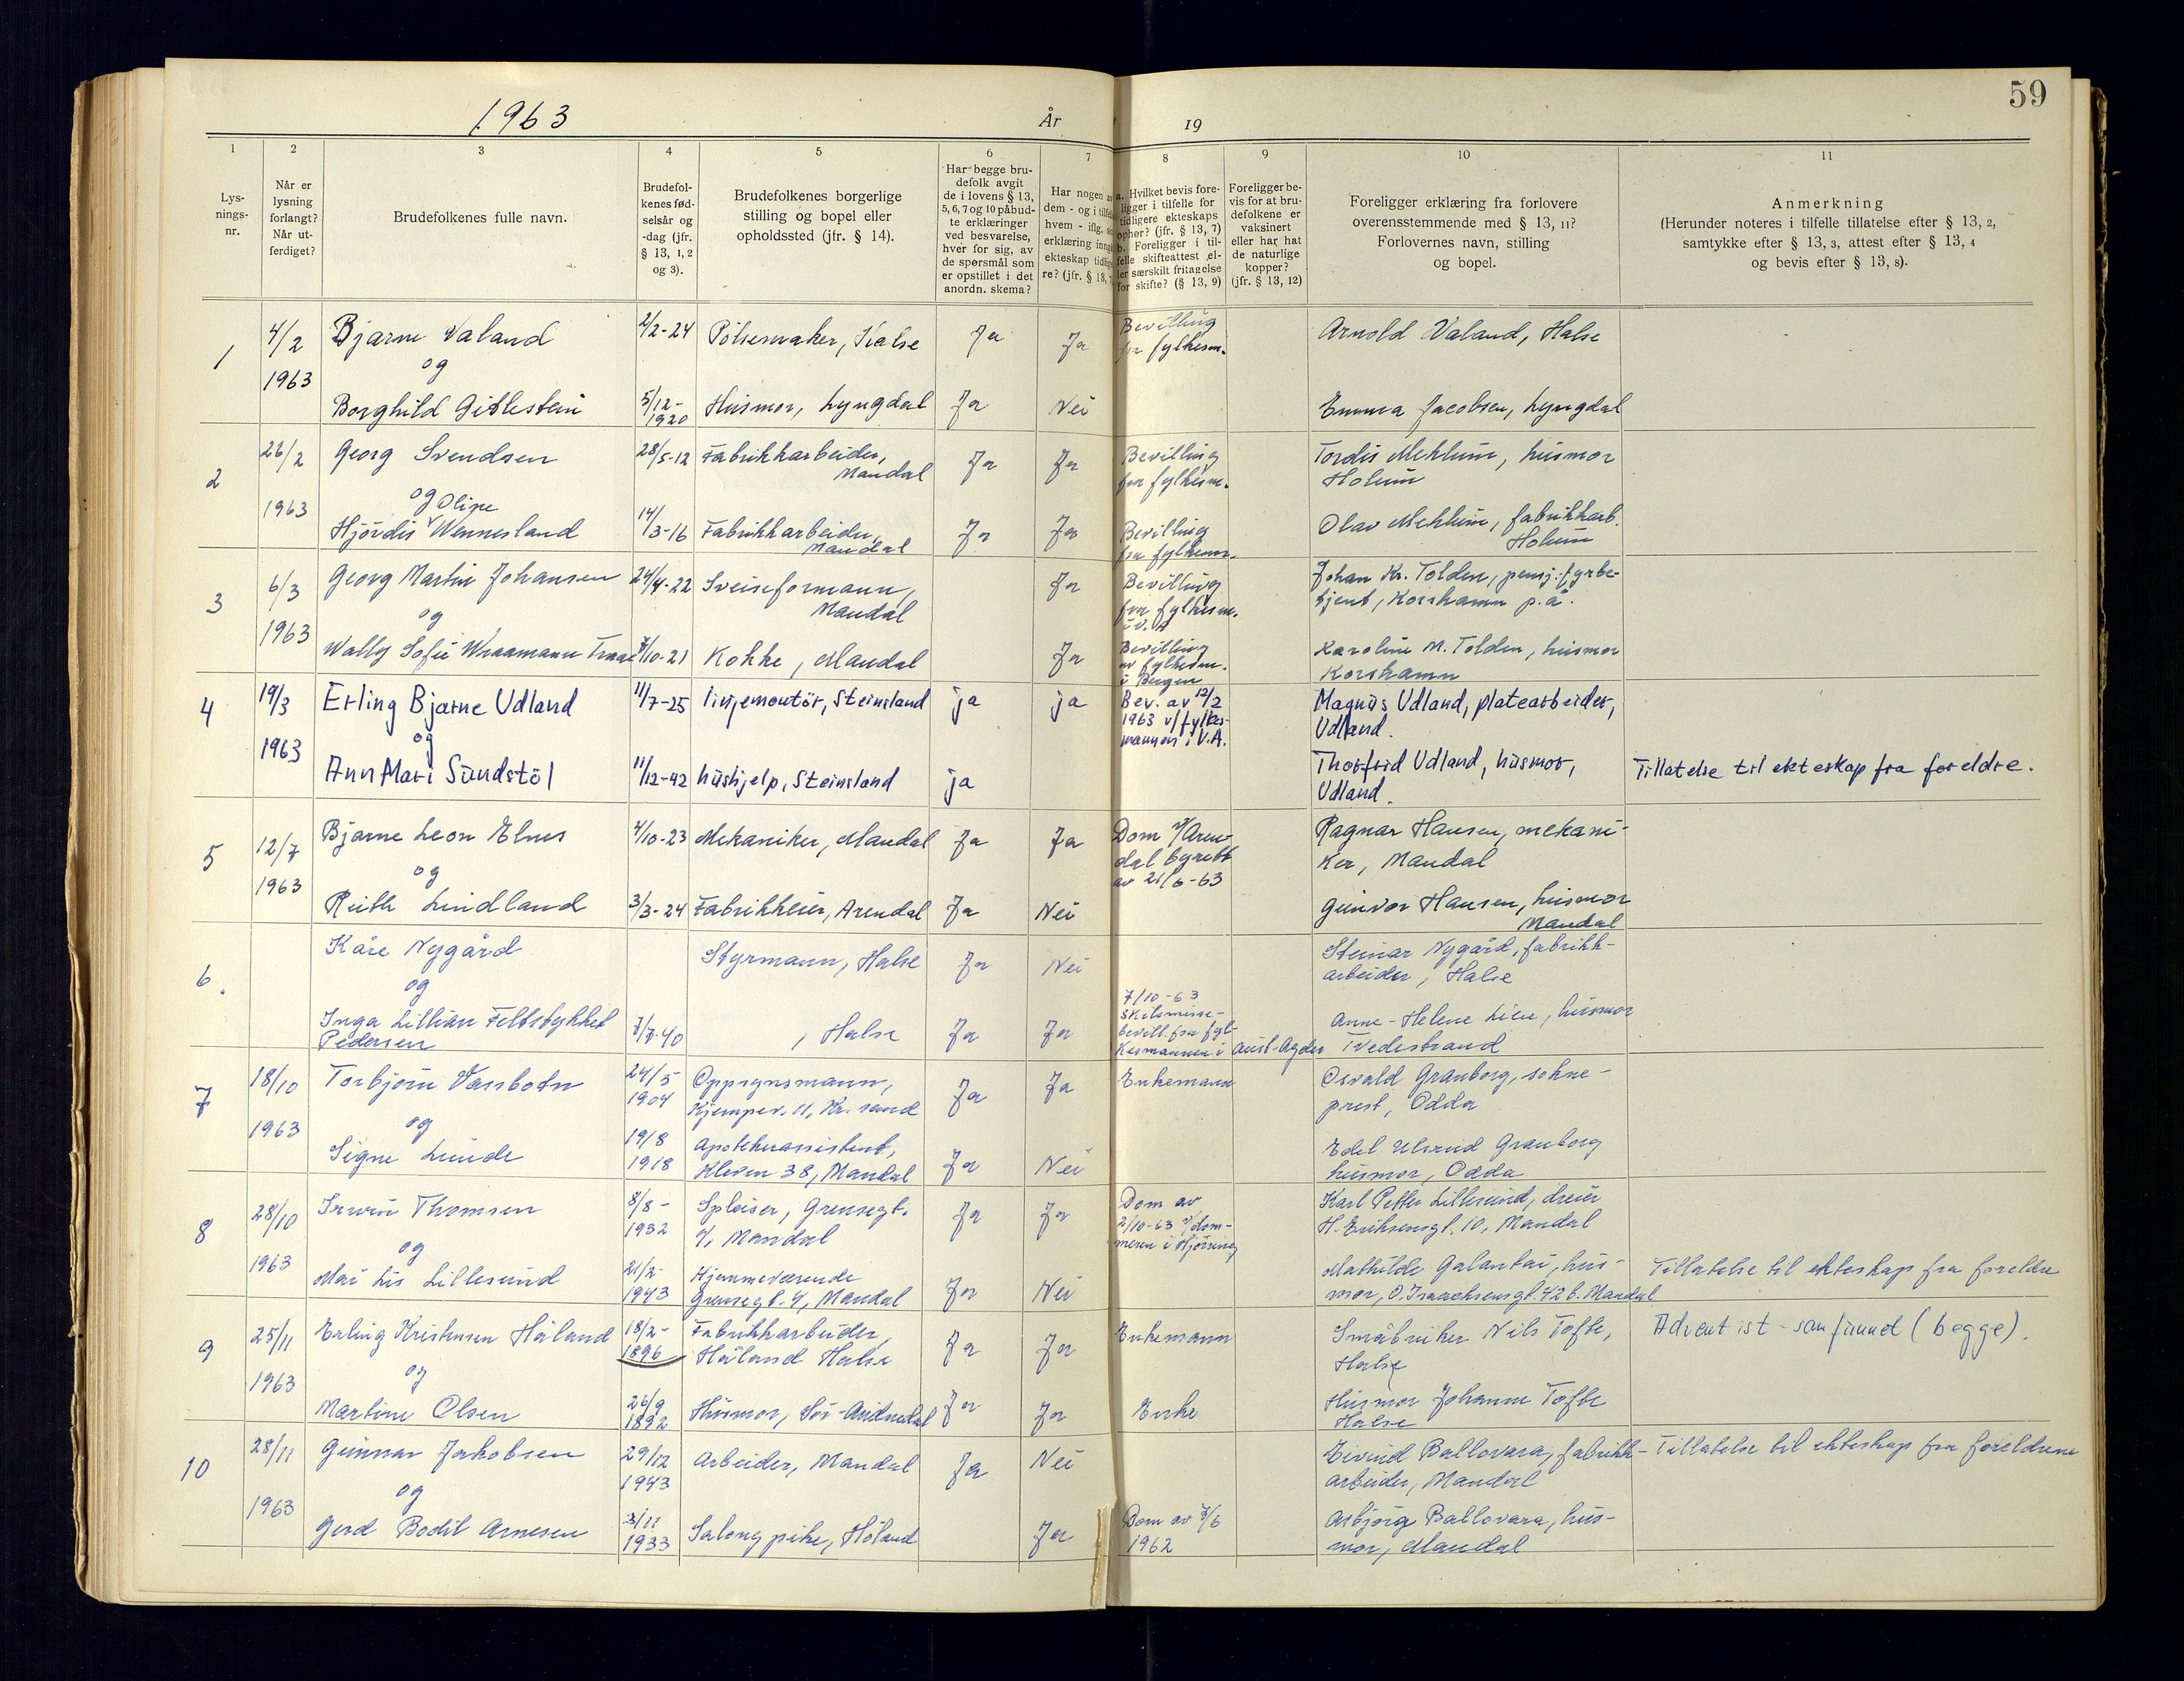 59
1963
År 19
1
2
3
4
5
6
7
8
9
10
11
Lys-
nings-
nr.
Når er
lysning
forlangt?
Når ut-
ferdiget?
Brudefolkenes fulle navn.
Brudefol-
kenes fød-
selsår og
-dag (jfr.
§ 13, 1, 2
og 3).
Brudefolkenes borgerlige
stilling og bopel eller
opholdssted (jfr. § 14).
Har begge bru-
defolk avgit
de i lovens § 13,
5, 6, 7 og 10 påbud-
te erklæringer
ved besvarelse,
hver for sig, av
de spørsmål som
er opstillet i det
anordn. skema?
Har nogen a
dem - og i tilfel
hvem - iflg. si
erklæring inng
ekteskap tidlig
re? (jfr. § 13, 7
a. Hvilket bevis fore-
ligger i tilfelle for
tidligere ekteskaps
ophør? (jfr. § 13, 7)
b. Foreligger i til-
felle skifteattest el-
ler særskilt fritagelse
for skifte? (§ 13, 9)
Foreligger be-
vis for at bru-
defolkene er
vaksinert
eller har hat
de naturlige
kopper?
(jfr. § 13, 12)
Foreligger erklæring fra forlovere
overensstemmende med § 13, 11?
Forlovernes navn, stilling
og bopel.
Anmerkning
(Herunder noteres i tilfelle tillatelse efter § 13, 2,
samtykke efter § 13, 3, attest efter § 13, 4
og bevis efter § 13, 8).
1
4/2
1963
Bjarne Valand
og
Borghild Gitlestein
2/2-24
5/12-
1920
Pölsemaker, Halse
Husmor, Lyngdal
Ja
Ja
Ja
Nei
Bevilling
fra fylkesm.
Arnold Valand, Halse
Emma Jacobsen, Lyngdal
2
26/2
1963
Georg Svendsen
og Oline
Hjördis Wennesland
28/5-12
14/3-16
Fabrikkarbeider,
Mandal
Fabrikkarbeider,
Mandal
Ja
Ja
Ja
Ja
Bevilling
fra fylkesm.
Bevilling
fra fylkesm.
Tordis Mehlum, husmor
Holum
Olav Mehlum, fabrikkarb.
Holum
3
6/3
1963
Georg Martin Johansen
og
Wally Sofie
24/4-22
7/10-21
Sveiseformann,
Mandal
Kokke, Mandal
Ja
Ja
Bevilling
fra fylkesm.
i V. A
Bevilling
av fylkesm.
i Bergen
Johan Kr. Tolden, pensj. fyrbe-
tjent, Korshamn p.å.
Karoline M. Tolden, husmor
Korshamn
4
19/3
1963
Erling Bjarne Udland
og
Ann Mari Sundstöl
11/7-25
11/12-42
linjemontör, Steinsland
hushjelp, Steinsland
ja
ja
ja
Bev. av 12/2
1963 v/fylkes-
mannen i V.A.
Magnus Udland, platearbeider,
Udland.
Thorfrid Udland, husmor,
Udland.
Tillatelse til ekteskap fra foreldre.
5
12/7
1963
Bjarne Leon Elnes
og
Ruth Lindland
4/10-23
3/3-24
Mekaniker, Mandal
Fabrikkeier, Arendal
Ja
Ja
Ja
Nei
Dom v/Aren-
dal byrett
av 21/6-63
Ragnar Hansen, mekani-
ker, Mandal
Gunvor Hansen, husmor
Mandal
6.
Kåre Nygård
og
Inga Lillian Feltstykket
Pedersen
7/7-40
Styrmann, Halse
, Halse
Ja
Nei
Ja
Ja
7/10-63
Skilsmisse-
bevill. fra fyl-
kesmannen i Aust-Agder
Steinar Nygård, fabrikk-
arbeider, Halse
Anne-Helene Lien, husmor
Tvedestrand
7
18/10
1963
Torbjörn Vassbotn
og
Signe Lunde
24/5
1904
19/8
1918
Oppsynsmann,
Kjempev. 11, Kr. sand
Apotekerassistent,
Kleven 38, Mandal
Ja
Ja
Ja
Nei
Enkemann
Osvald Granborg, sokne-
prest, Odda
Edel Ulsrud Granborg
husmor, Odda
8
28/10
1963
Irwin Thomsen
og
Mai Lis Lillesund
8/8-
1932
21/2-
1943
Spleiser, Grensegt.
4, Mandal
Hjemmeværende
Grensegt. 4, Mandal
Ja
Ja
Ja
Nei
Dom av
2/10-63 v/dom-
meren i Hjörring
Karl Petter Lillesund, dreier
H. Eriksensgt. 10, Mandal
Mathilde Galantai, hus-
mor, O. Isaachsensgt. 42 b. Mandal
Tillatelse til ekteskap fra foreldre
9
25/11
1963
Erling Kristensen Håland
og
Martine Olsen
18/2-
1896
26/9
1892
Fabrikkarbeider,
Håland Halse
Husmor, Sör-Audnedal
Ja
Ja
Ja
Ja
Enkemann
Enke
Småbruker Nils Tofte,
Halse
Husmor Johanne Tofte
Halse
Adventist-samfunnet (begge).
10
28/11
1963
Gunnar Jakobsen
og
Gerd Bodil Arnesen
29/12
1943
3/11
1933
Arbeider, Mandal
Salongpike, Höland
Ja
Nei
Ja
Dom av 7/6
1962
Eivind Ballovara, fabrikk-
arbeider, Mandal
Asbjörg Ballovara, hus-
mor, Mandal
Tillatelse til ekteskap fra foreldrene